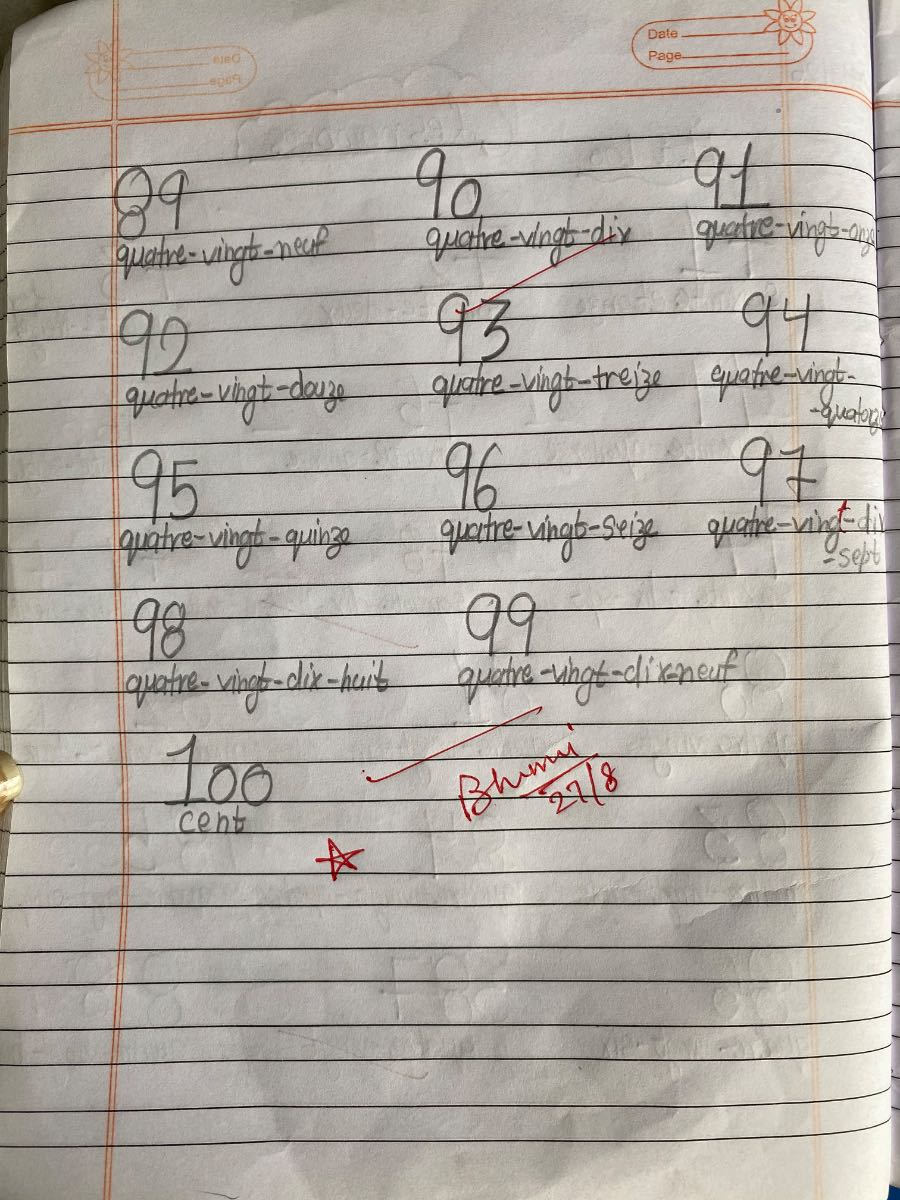 Date
Page
89 90 91
quatre-vingt-neuf quatre-vingt-dix quatre-vingt-onze
92 93 94
quatre-vingt-douze quatre-vingt-treize quatre-vingt-
-quatorz
95 96 97
quatre-vingt-quinze quatre-vingt-seize quatre-vingt-di
-sept
98 99
quatre-vingt-dix-huit quatre-vingt-dix-neuf
100
cent
27/8